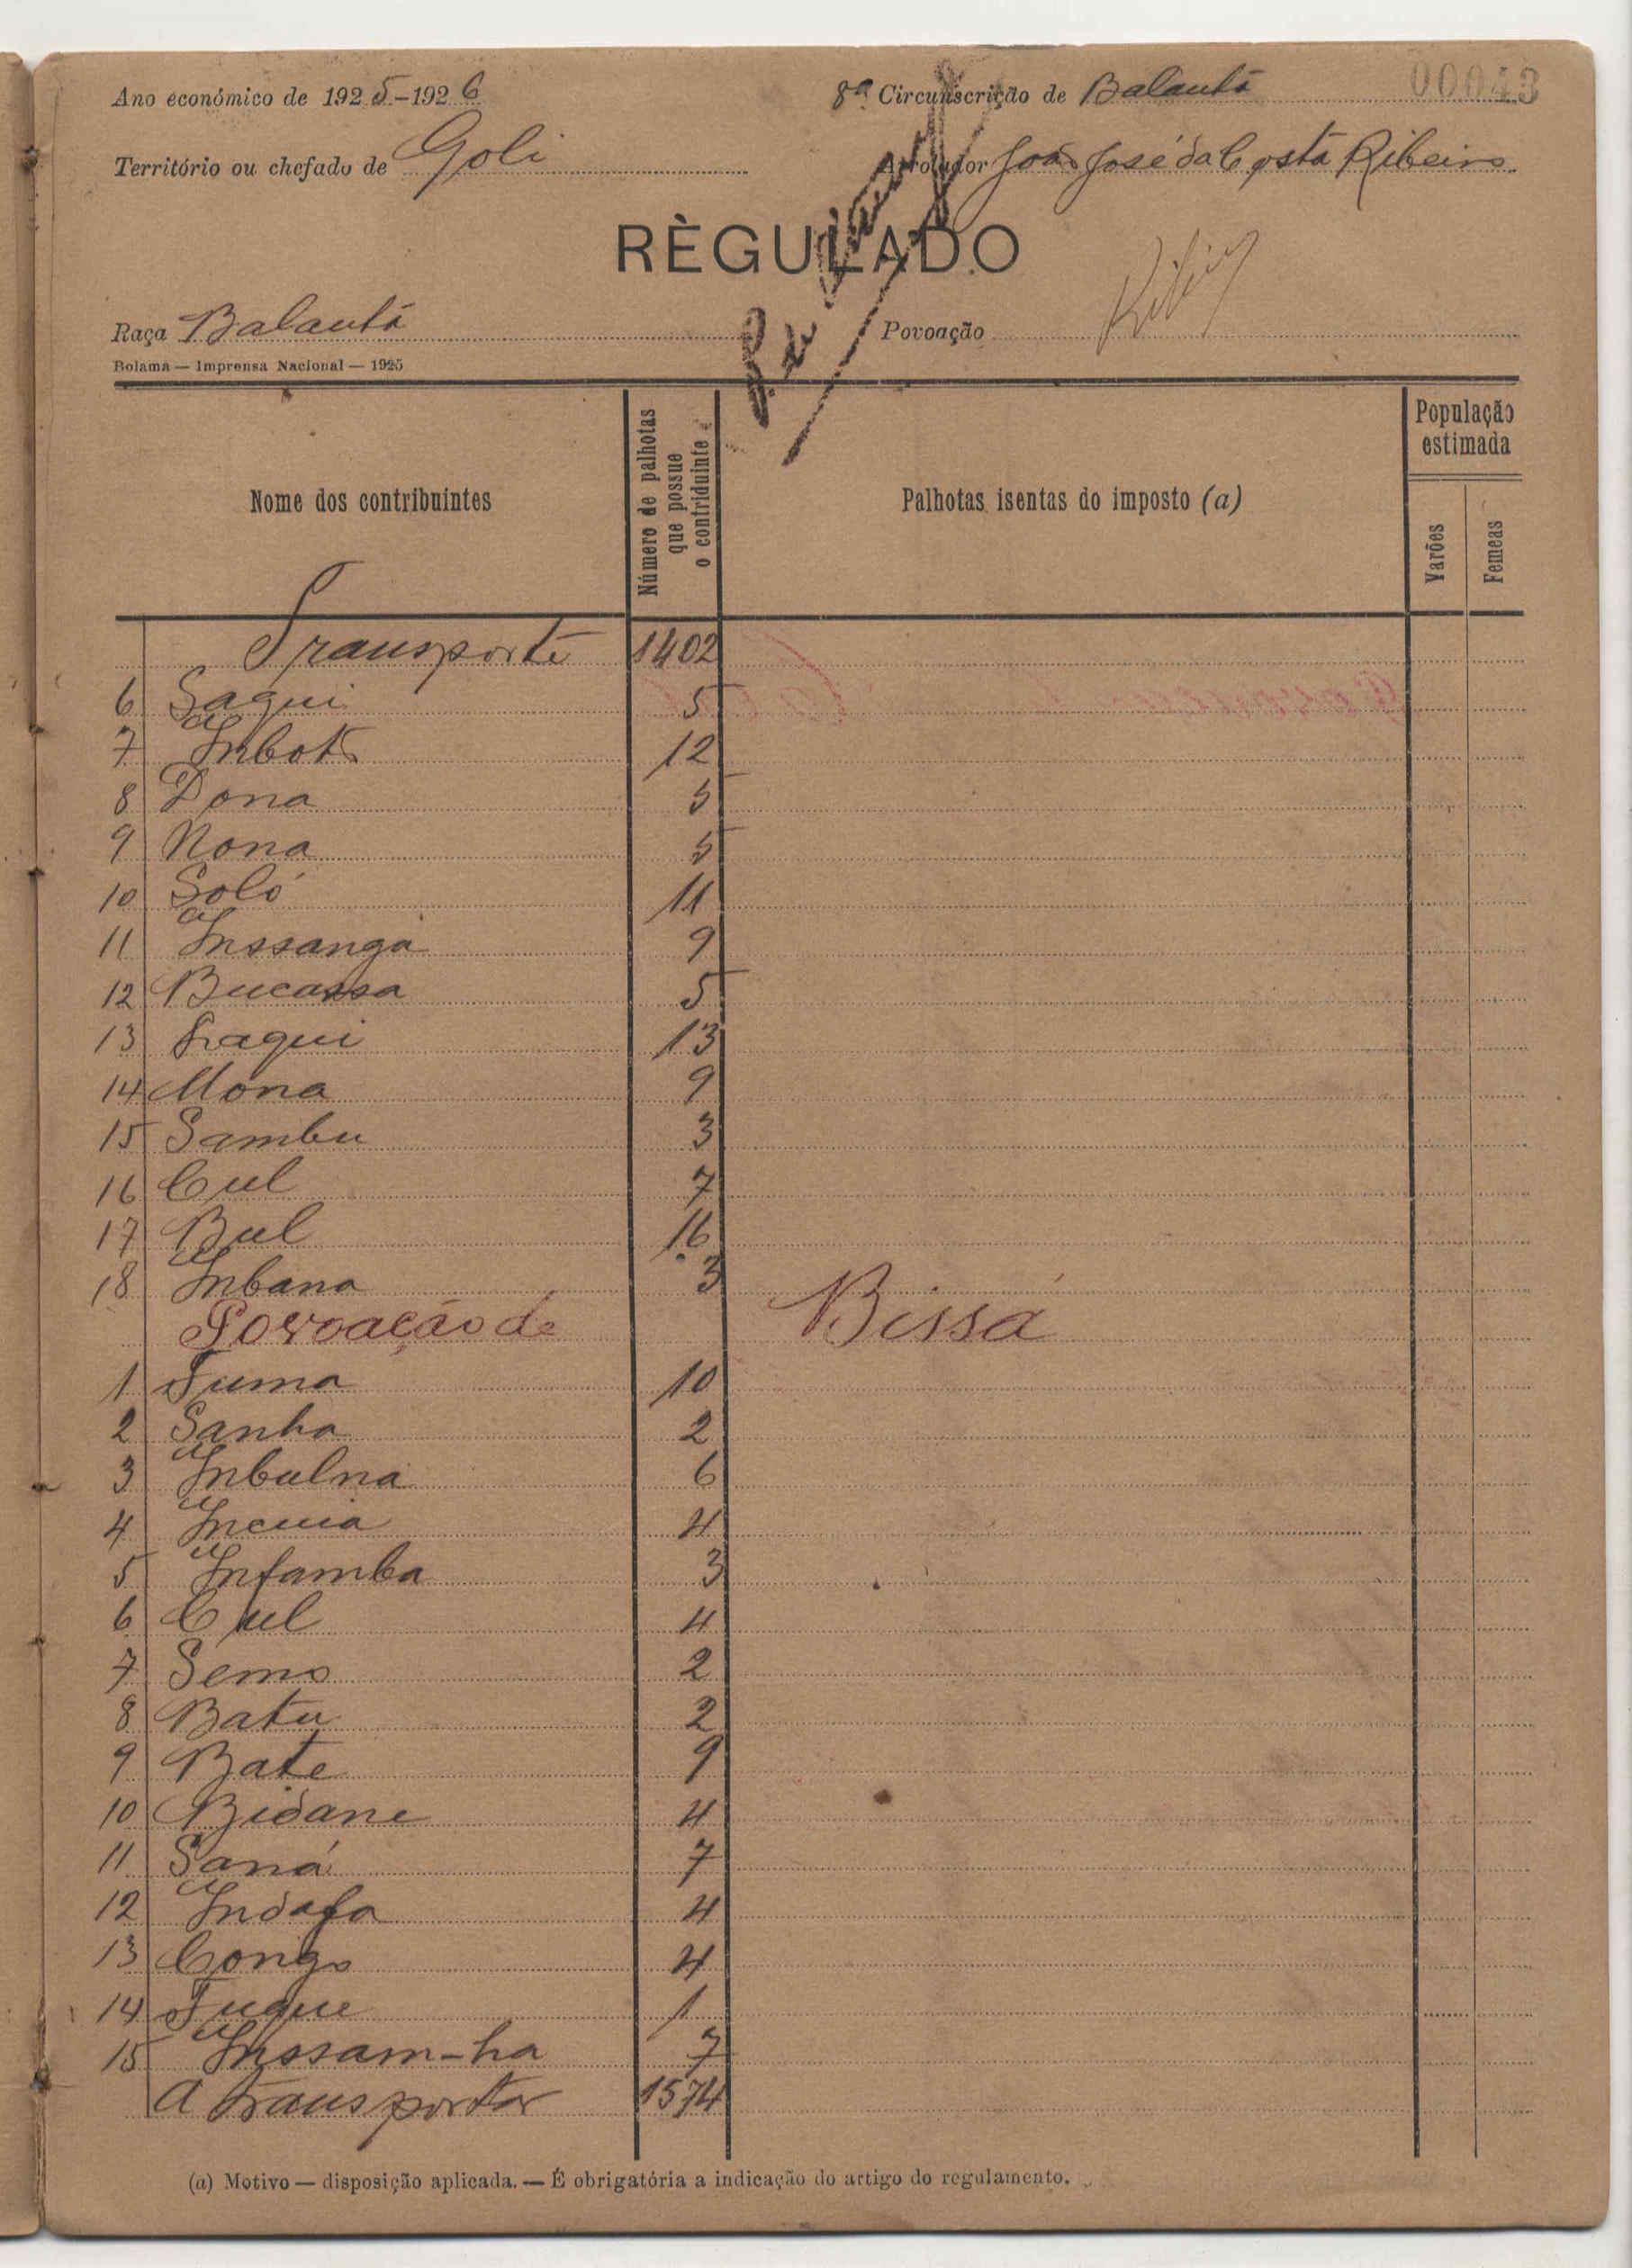 Ano económico de 1925-1926
8ª Circunscrição de Balanta
00043
Território ou chefado de Goli
Arrolador João José da Costa Ribeiro
RÈGULADO
Raça Balanta
Povoação
Bolama — Imprensa Nacional — 1925
Nome dos contribuintes
Número de palhotas que possue o contriduinte
Palhotas isentas do imposto (a)
População estimada
Varões
Femeas
Transporte 1402
6 Saqui 5
7 Inbots 12
8 Dona 5
9 Nona 5
10 Soló 11
11 Inssanga 9
12 Bucassa 5
13 Saqui 13
14 Mona 9
15 Sambu 3
16 Cul 7
17 Bul 16
18 Inbana 3
Povoação de Bissá
1 Tuma 10
2 Sanha 2
3 Inbulna 6
4 Incuia 4
5 Infamba 3
6 Cul 4
7 Semo 2
8 Batu 2
9 Bate 9
10 Bidane 4
11 Saná 7
12 Indafa 4
13 Congo 4
14 Fuque 1
15 Inssam-ha 7
A transportar 1574
(a) Motivo — disposição aplicada. — É obrigatória a indicação do artigo do regulamento.